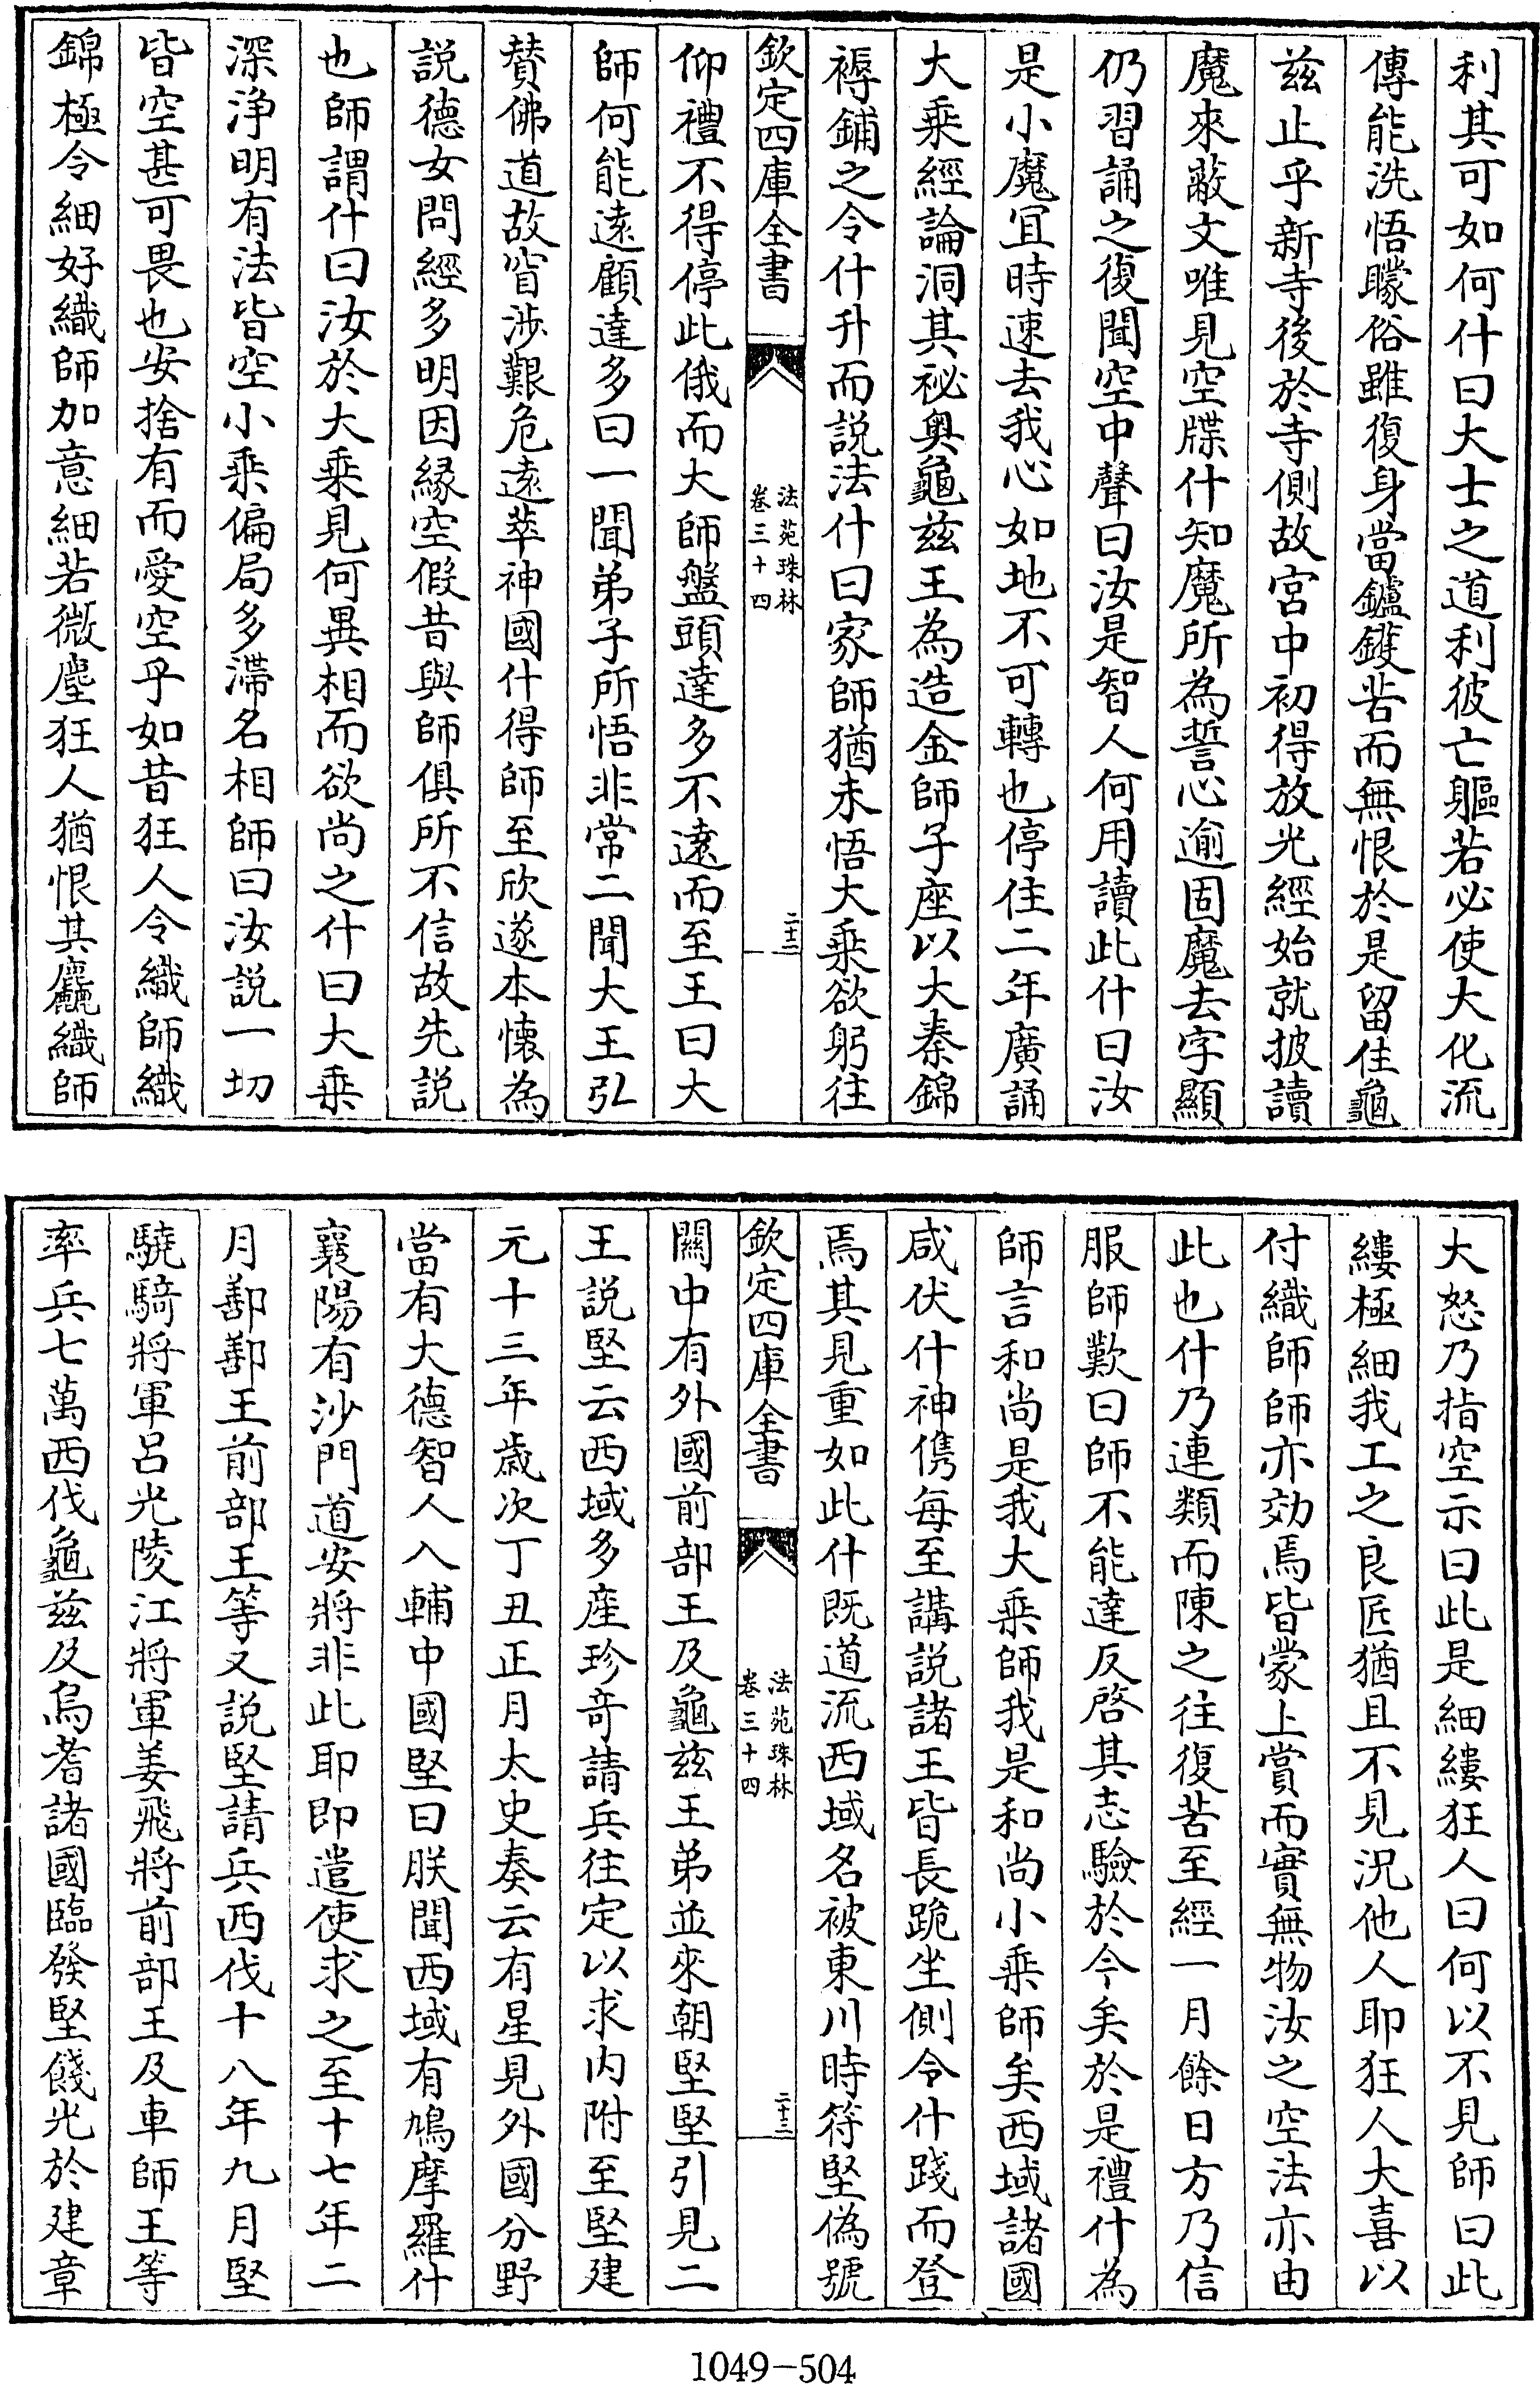 利其可如何什曰大士之道利彼亡軀若必使大化流
傳能洗悟矇俗雖復身當鑪鑊苦而無恨於是留住龜
兹止乎新寺後於寺側故宮中初得放光經始就披讀
魔來蔽文唯見空牒什知魔所為誓心逾固魔去字顯
仍習誦之復聞空中聲曰汝是智人何用讀此什曰汝
是小魔宜時速去我心如地不可轉也停住二年廣誦
大乘經論洞其祕奥龜兹王為造金師子座以大秦錦
褥鋪之令什升而説法什曰家師猶未悟大乘欲躬往
欽定四庫全書
法苑珠林
卷三十四
二十二
仰禮不得停此俄而大師盤頭達多不遠而至王曰大
師何能遠顧達多曰一聞弟子所悟非常二聞大王弘
賛佛道故冒涉艱危遠萃神國什得師至欣遂本懷為
説德女問經多明因緣空假昔與師俱所不信故先説
也師謂什曰汝於大乘見何異相而欲尚之什曰大乘
深浄明有法皆空小乘偏局多滯名相師曰汝説一切
皆空甚可畏也安捨有而愛空乎如昔狂人令織師織
錦極令細好織師加意細若微塵狂人猶恨其麤織師
大怒乃指空示曰此是細縷狂人曰何以不見師曰此
縷極細我工之良匠猶且不見況他人耶狂人大喜以
付織師師亦効焉皆蒙上賞而實無物汝之空法亦由
此也什乃連類而陳之往復苦至經一月餘日方乃信
服師歎曰師不能達反啓其志驗於今矣於是禮什為
師言和尚是我大乘師我是和尚小乘師矣西域諸國
咸伏什神儁每至講説諸王皆長跪坐側令什踐而登
焉其見重如此什既道流西域名被東川時符堅偽號
欽定四庫全書
法苑珠林
卷三十四
二十三
關中有外國前部王及龜兹王弟並來朝堅堅引見二
王説堅云西域多産珍竒請兵往定以求内附至堅建
元十三年歲次丁丑正月太史奏云有星見外國分野
當有大德智人入輔中國堅曰朕聞西域有鳩摩羅什
襄陽有沙門道安將非此耶即遣使求之至十七年二
月鄯鄯王前部王等又説堅請兵西伐十八年九月堅
驍騎將軍吕光陵江將軍姜飛將前部王及車師王等
率兵七萬西伐龜兹及烏耆諸國臨發堅餞光於建章
1049-504